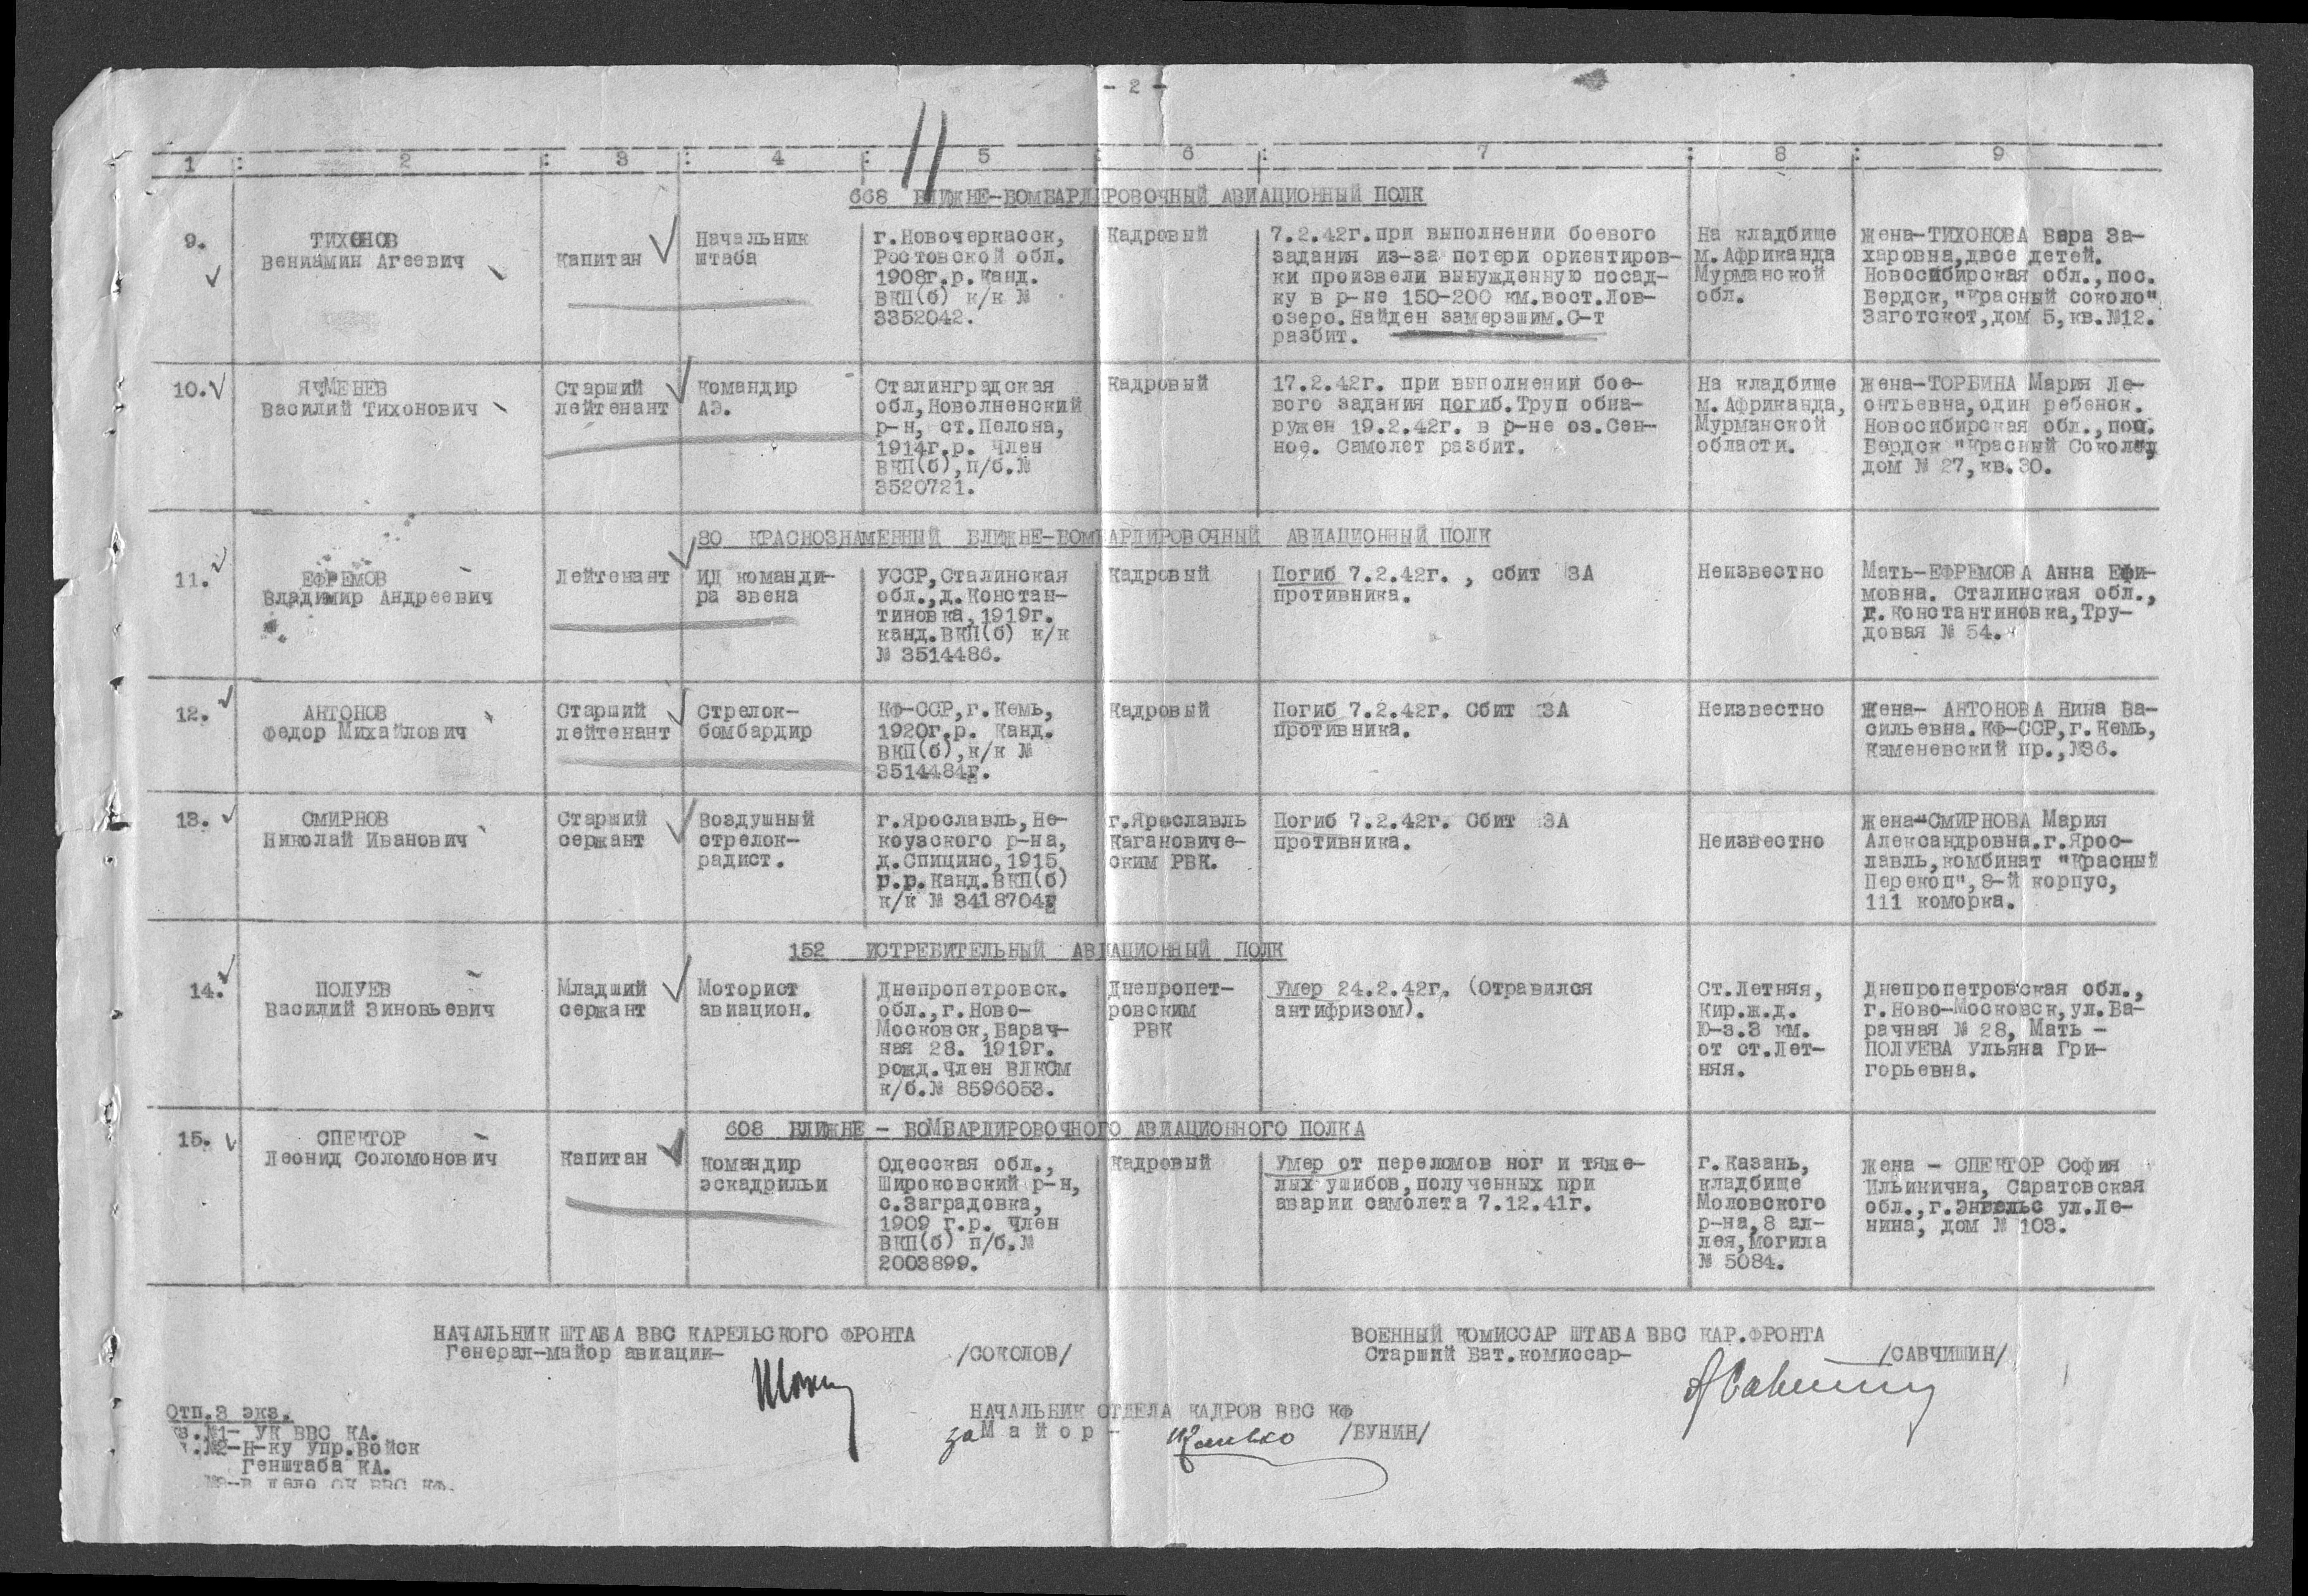 - 2 -
11
1 : 2 : 3 : 4 : 5 : 6 : 7 : 8 : 9
668 БЛИЖНЕ-БОМБАРДИРОВОЧНЫЙ АВИАЦИОННЫЙ ПОЛК
9.
ТИХОНОВ
Вениамин Агеевич
Капитан
Начальник
штаба
г.Новочеркасск,
Ростовской обл.
1908г.р. Канд.
ВКП(б) к/к №
3352042.
Кадровый
7.2.42г.при выполнении боевого
задания из-за потери ориентиров-
ки произвели вынужденную посад-
ку в р-не 150-200 км.вост.Лов-
озеро.Найден замерзшим.С-т
разбит.
На кладбище
м.Африканда
Мурманской
обл.
Жена-ТИХОНОВА Вера За-
харовна,двое детей.
Новосибирская обл.,пос.
Бердск,"Красный соколо"
Заготскот,дом 5,кв.№12.
10.
ЯЧМЕНЕВ
Василий Тихонович
Старший
лейтенант
Командир
АЭ.
Сталинградская
обл,Новолненский
р-н, ст.Пелона,
1914г.р. Член
ВКП(б),п/б.№
3520721.
Кадровый
17.2.42г. при выполнении бое-
вого задания погиб.Труп обна-
ружен 19.2.42г. в р-не оз.Сен-
ное. Самолет разбит.
На кладбище
м.Африканда,
Мурманской
области.
Жена-ТОРБИНА Мария Ле-
онтьевна,один ребенок.
Новосибирская обл.,пос.
Бердск "Красный Сокол"
дом № 27,кв.30.
80 КРАСНОЗНАМЕННЫЙ БЛИЖНЕ-БОМБАРДИРОВОЧНЫЙ АВИАЦИОННЫЙ ПОЛК
11.
ЕФРЕМОВ
Владимир Андреевич
Лейтенант
ИД команди-
ра звена
УССР,Сталинская
обл.,д.Констан-
тиновка,1919г.
канд.ВКП(б) к/к
№ 3514486.
Кадровый
Погиб 7.2.42г. , сбит ЗА
противника.
Неизвестно
Мать-ЕФРЕМОВА Анна Ефи-
мовна. Сталинская обл.,
г.Константиновка,Тру-
довая № 54.
12.
АНТОНОВ
Федор Михайлович
Старший
лейтенант
Стрелок-
бомбардир
КФ-ССР,г.Кемь,
1920г.р. Канд.
ВКП(б),к/к №
3514484.
Кадровый
Погиб 7.2.42г. Сбит ЗА
противника.
Неизвестно
Жена- АНТОНОВА Нина Ва-
сильевна.КФ-ССР,г.Кемь,
Каменевский пр.,№36.
13.
СМИРНОВ
Николай Иванович
Старший
сержант
Воздушный
стрелок-
радист.
г.Ярославль,Не-
коузского р-на,
д.Спицино,1915
г.р.Канд.ВКП(б)
к/к № 3418704
г.Ярославль
Кагановиче-
ским РВК.
Погиб 7.2.42г. Сбит ЗА
противника.
Неизвестно
Жена-СМИРНОВА Мария
Александровна.г.Ярос-
лавль,комбинат "Красный
Перекоп",8-й корпус,
111 коморка.
152 ИСТРЕБИТЕЛЬНЫЙ АВИАЦИОННЫЙ ПОЛК
14.
ПОЛУЕВ
Василий Зиновьевич
Младший
сержант
Моторист
авиацион.
Днепропетровск.
обл.,г.Ново-
Московск,Барач-
ная 28. 1919г.
рожд.Член ВЛКСМ
к/б.№ 8596053.
Днепропет-
ровским
РВК
Умер 24.2.42г. (Отравился
антифризом).
Ст.Летняя,
Кир.ж.д.
Ю-з.3 км.
от ст.Лет-
няя.
Днепропетровская обл.,
г.Ново-Московск,ул.Ба-
рачная № 28, Мать -
ПОЛУЕВА Ульяна Гри-
горьевна.
608 БЛИЖНЕ - БОМБАРДИРОВОЧНОГО АВИАЦИОННОГО ПОЛКА
15.
СПЕКТОР
Леонид Соломонович
Капитан
Командир
эскадрильи
Одесская обл.,
Широковский р-н,
с.Заградовка,
1909 г.р. Член
ВКП(б) п/б.№
2003899.
Кадровый
Умер от переломов ног и тяже-
лых ушибов,полученных при
аварии самолета 7.12.41г.
г.Казань,
кладбище
Моловского
р-на,8 ал-
лея,могила
№ 5084.
Жена - СПЕКТОР София
Ильинична, Саратовская
обл.,г.Энгельс ул.Ле-
нина, дом № 103.
НАЧАЛЬНИК ШТАБА ВВС КАРЕЛЬСКОГО ФРОНТА
Генерал-майор авиации-
/СОКОЛОВ/
ВОЕННЫЙ КОМИССАР ШТАБА ВВС КАР.ФРОНТА
Старший Бат.комиссар-
/САВЧИШИН/
НАЧАЛЬНИК ОТДЕЛА КАДРОВ ВВС КФ
за Майор-
/БУНИН/
Отп.3 экз.
з.№1- УК ВВС КА.
.№2-Н-ку упр.войск
Генштаба КА.
№3-в дело ОК ВВС КФ.